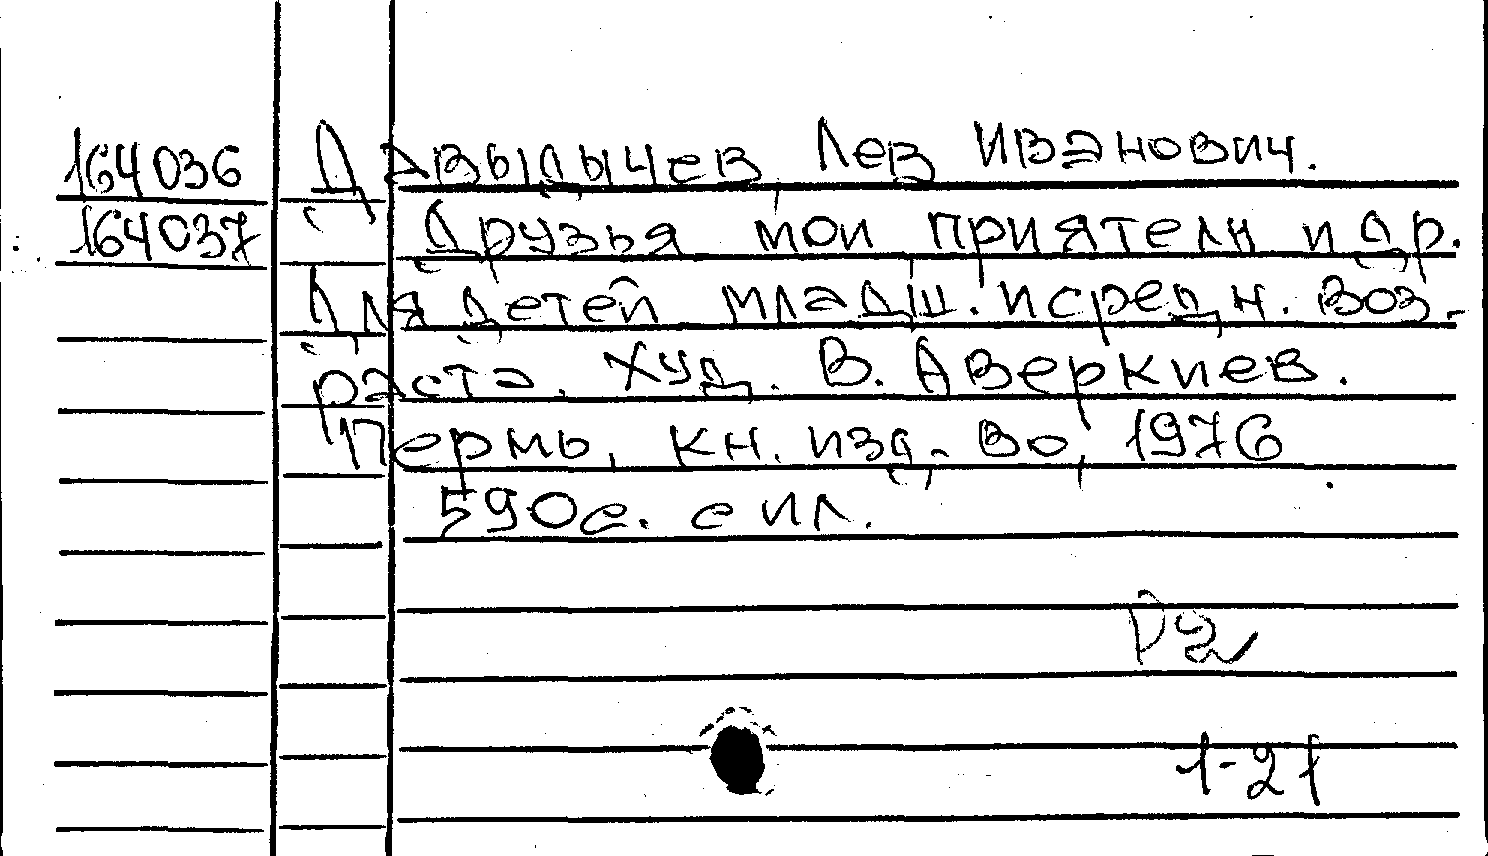 164036 Давыдычев, Лев Иванович.
164037 Друзья мои приятели и др.
Для детей младш. и средн. воз-
раста. Худ. В. Аверкиев.
Пермь, кн. изд-во, 1976
590с. с ил.
Р2
1-21